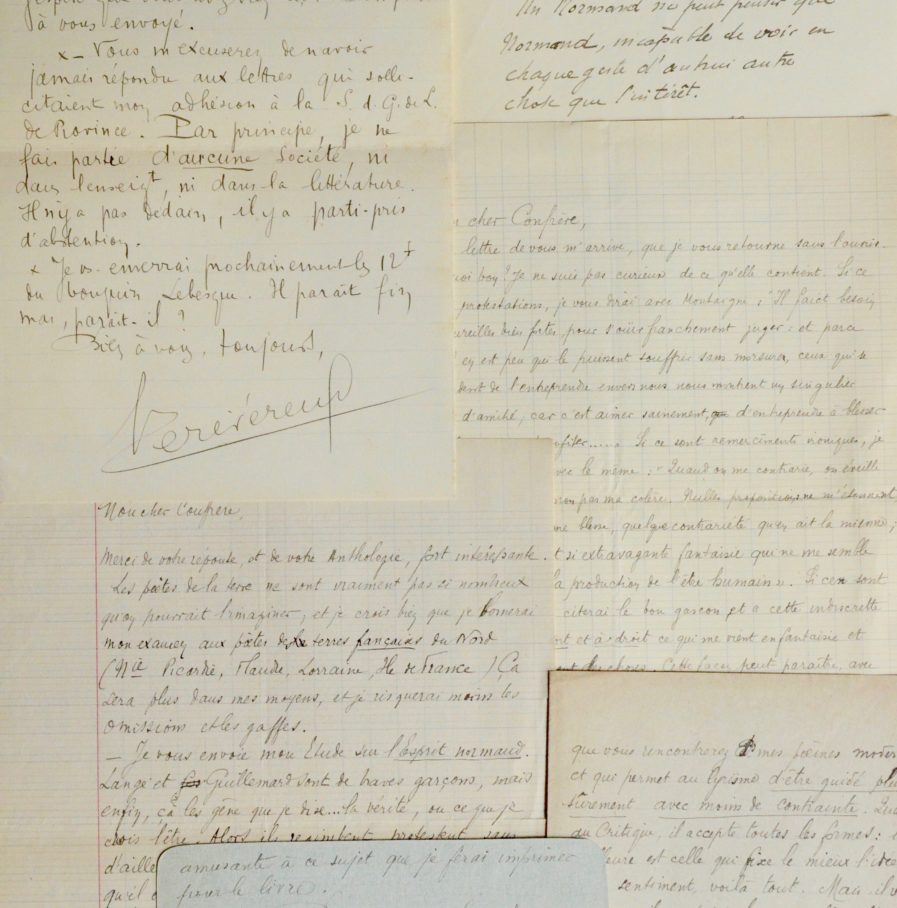 à vous envoyé.
x – Vous m'excuserez de n'avoir
jamais répondu aux lettres qui solli-
citaient mon adhésion à la S. d. G. de L.
de Province. Par principe, je ne
fais partie d'aucune Société, ni
dans l'enseigt, ni dans la littérature.
Il n'y a pas dédain, il y a parti-pris
d'abstention.
x Je vs enverrai prochainement les 12f
du bouquin Lebesgue. Il paraît fin
mai, paraît-il ?
Bien à vous, toujours,
Un Normand ne peut penser que
Normand, incapable de voir en
chaque geste d'autrui autre
chose que l'intérêt.
cher Confrère,
lettre de vous m'arrive, que je vous retourne sans l'ouvrir.
bon ? Je ne suis pas curieux de ce qu'elle contient. Si ce
protestations, je vous dirai avec Montaigne : "Il faict besoin
oreilles très fortes pour s'ouir franchement juger ; et parce
en est peu qui le puissent souffrir sans morsure, ceux qui se
de l'entreprendre envers nous nous montrent un singulier
d'amitié, car c'est aimer sainement, que d'entreprendre à blesser
..... Si ce sont remerciments ironiques, je
avec le même : "Quand on me contrarie, on éveille
non pas ma colère. Nulles propositions ne m'étonnent
me blesse, quelque contrariété qu'en ait la mienne ;
si extravagante fantaisie qui ne me semble
la production de l'être humain". Si ce sont
citerai le bon garçon et a cette indiscrette
et à droit ce qui me vient en fantaisie et
choses. Cette façon peut paraître, avec
Mon cher Confrère,
Merci de votre réponse, et de votre Anthologie, fort intéressante.
Les poètes de la terre ne sont vraiment pas si nombreux
qu'on pourrait l'imaginer, et je crois bien que je bornerai
mon examen aux poètes de terres françaises du Nord
(Nie Picardie, Flandre, Lorraine, Ile de France) Ça
sera plus dans mes moyens, et je risquerai moins les
omissions et les gaffes.
– Je vous envoie mon Etude sur l'Esprit normand.
Lange et Guillemard sont de braves garçons, mais
enfin, ça les gêne que je dise... la vérité, ou ce que je
crois l'être. Alors ils regimbent, protestent, sans
d'aille
qu'il
que vous rencontrerez mes poèmes
et qui permet au lyrisme d'être guidé plus
sûrement avec moins de contrainte.
au Critique, il accepte toutes les formes :
est celle qui fixe le mieux l'idée
sentiment, voilà tout. Mais il
amusante à ce sujet que je ferai imprimer
pour le livre.